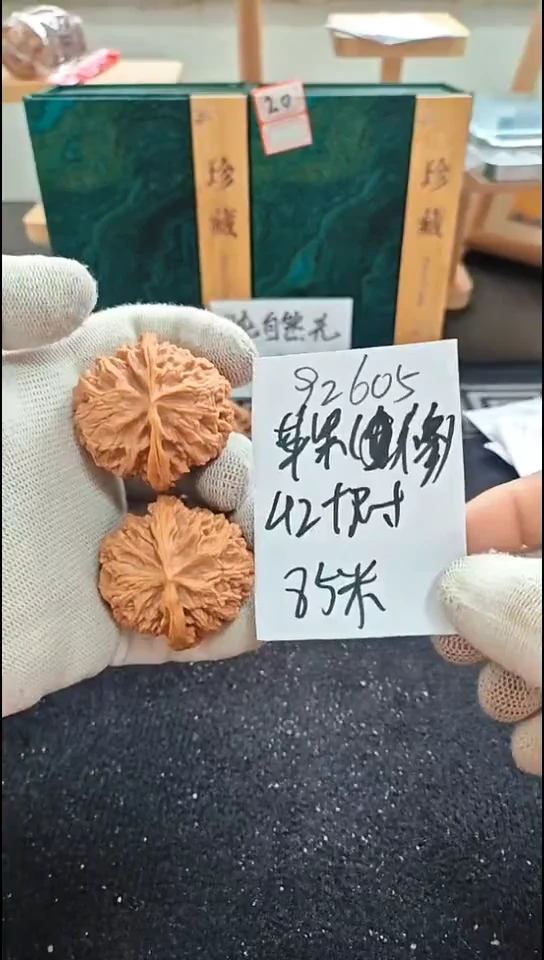 20
珍藏
珍藏
纯自然孔
92605
苹果(血修)
42+尺寸
85米